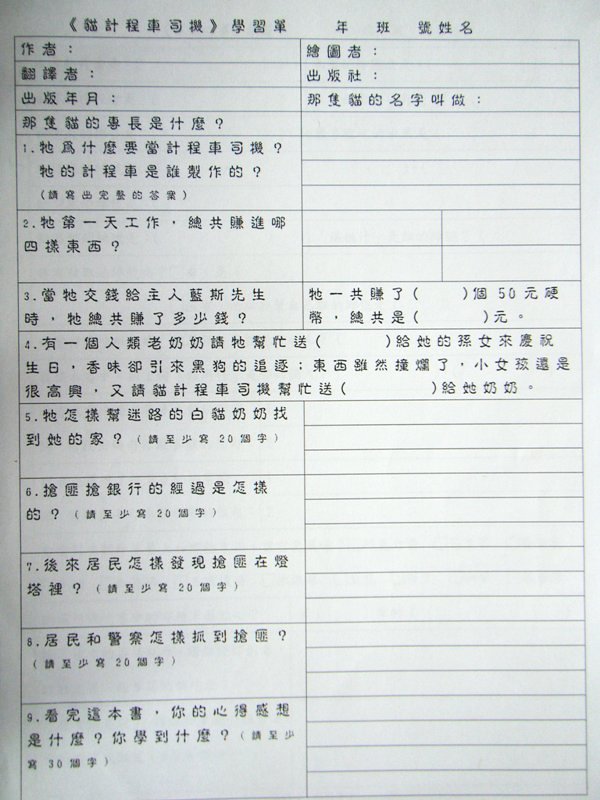 《貓計程車司機》學習單　　年　班　號姓名
作者：
繪圖者：
翻譯者：
出版社：
出版年月：
那隻貓的名字叫做：
那隻貓的專長是什麼？
1.牠為什麼要當計程車司機？
牠的計程車是誰製作的？
（請寫出完整的答案）
2.牠第一天工作，總共賺進哪
四樣東西？
3.當牠交錢給主人藍斯先生
時，牠總共賺了多少錢？
牠一共賺了(　　)個50元硬
幣，總共是(　　　)元。
4.有一個人類老奶奶請牠幫忙送(　　　)給她的孫女來慶祝
生日，香味卻引來黑狗的追逐；東西雖然撞爛了，小女孩還是
很高興，又請貓計程車司機幫忙送(　　　　)給她奶奶。
5.牠怎樣幫迷路的白貓奶奶找
到她的家？（請至少寫20個字）
6.搶匪搶銀行的經過是怎樣
的？（請至少寫20個字）
7.後來居民怎樣發現搶匪在燈
塔裡？（請至少寫20個字）
8.居民和警察怎樣抓到搶匪？
（請至少寫20個字）
9.看完這本書，你的心得感想
是什麼？你學到什麼？（請至少
寫30個字）